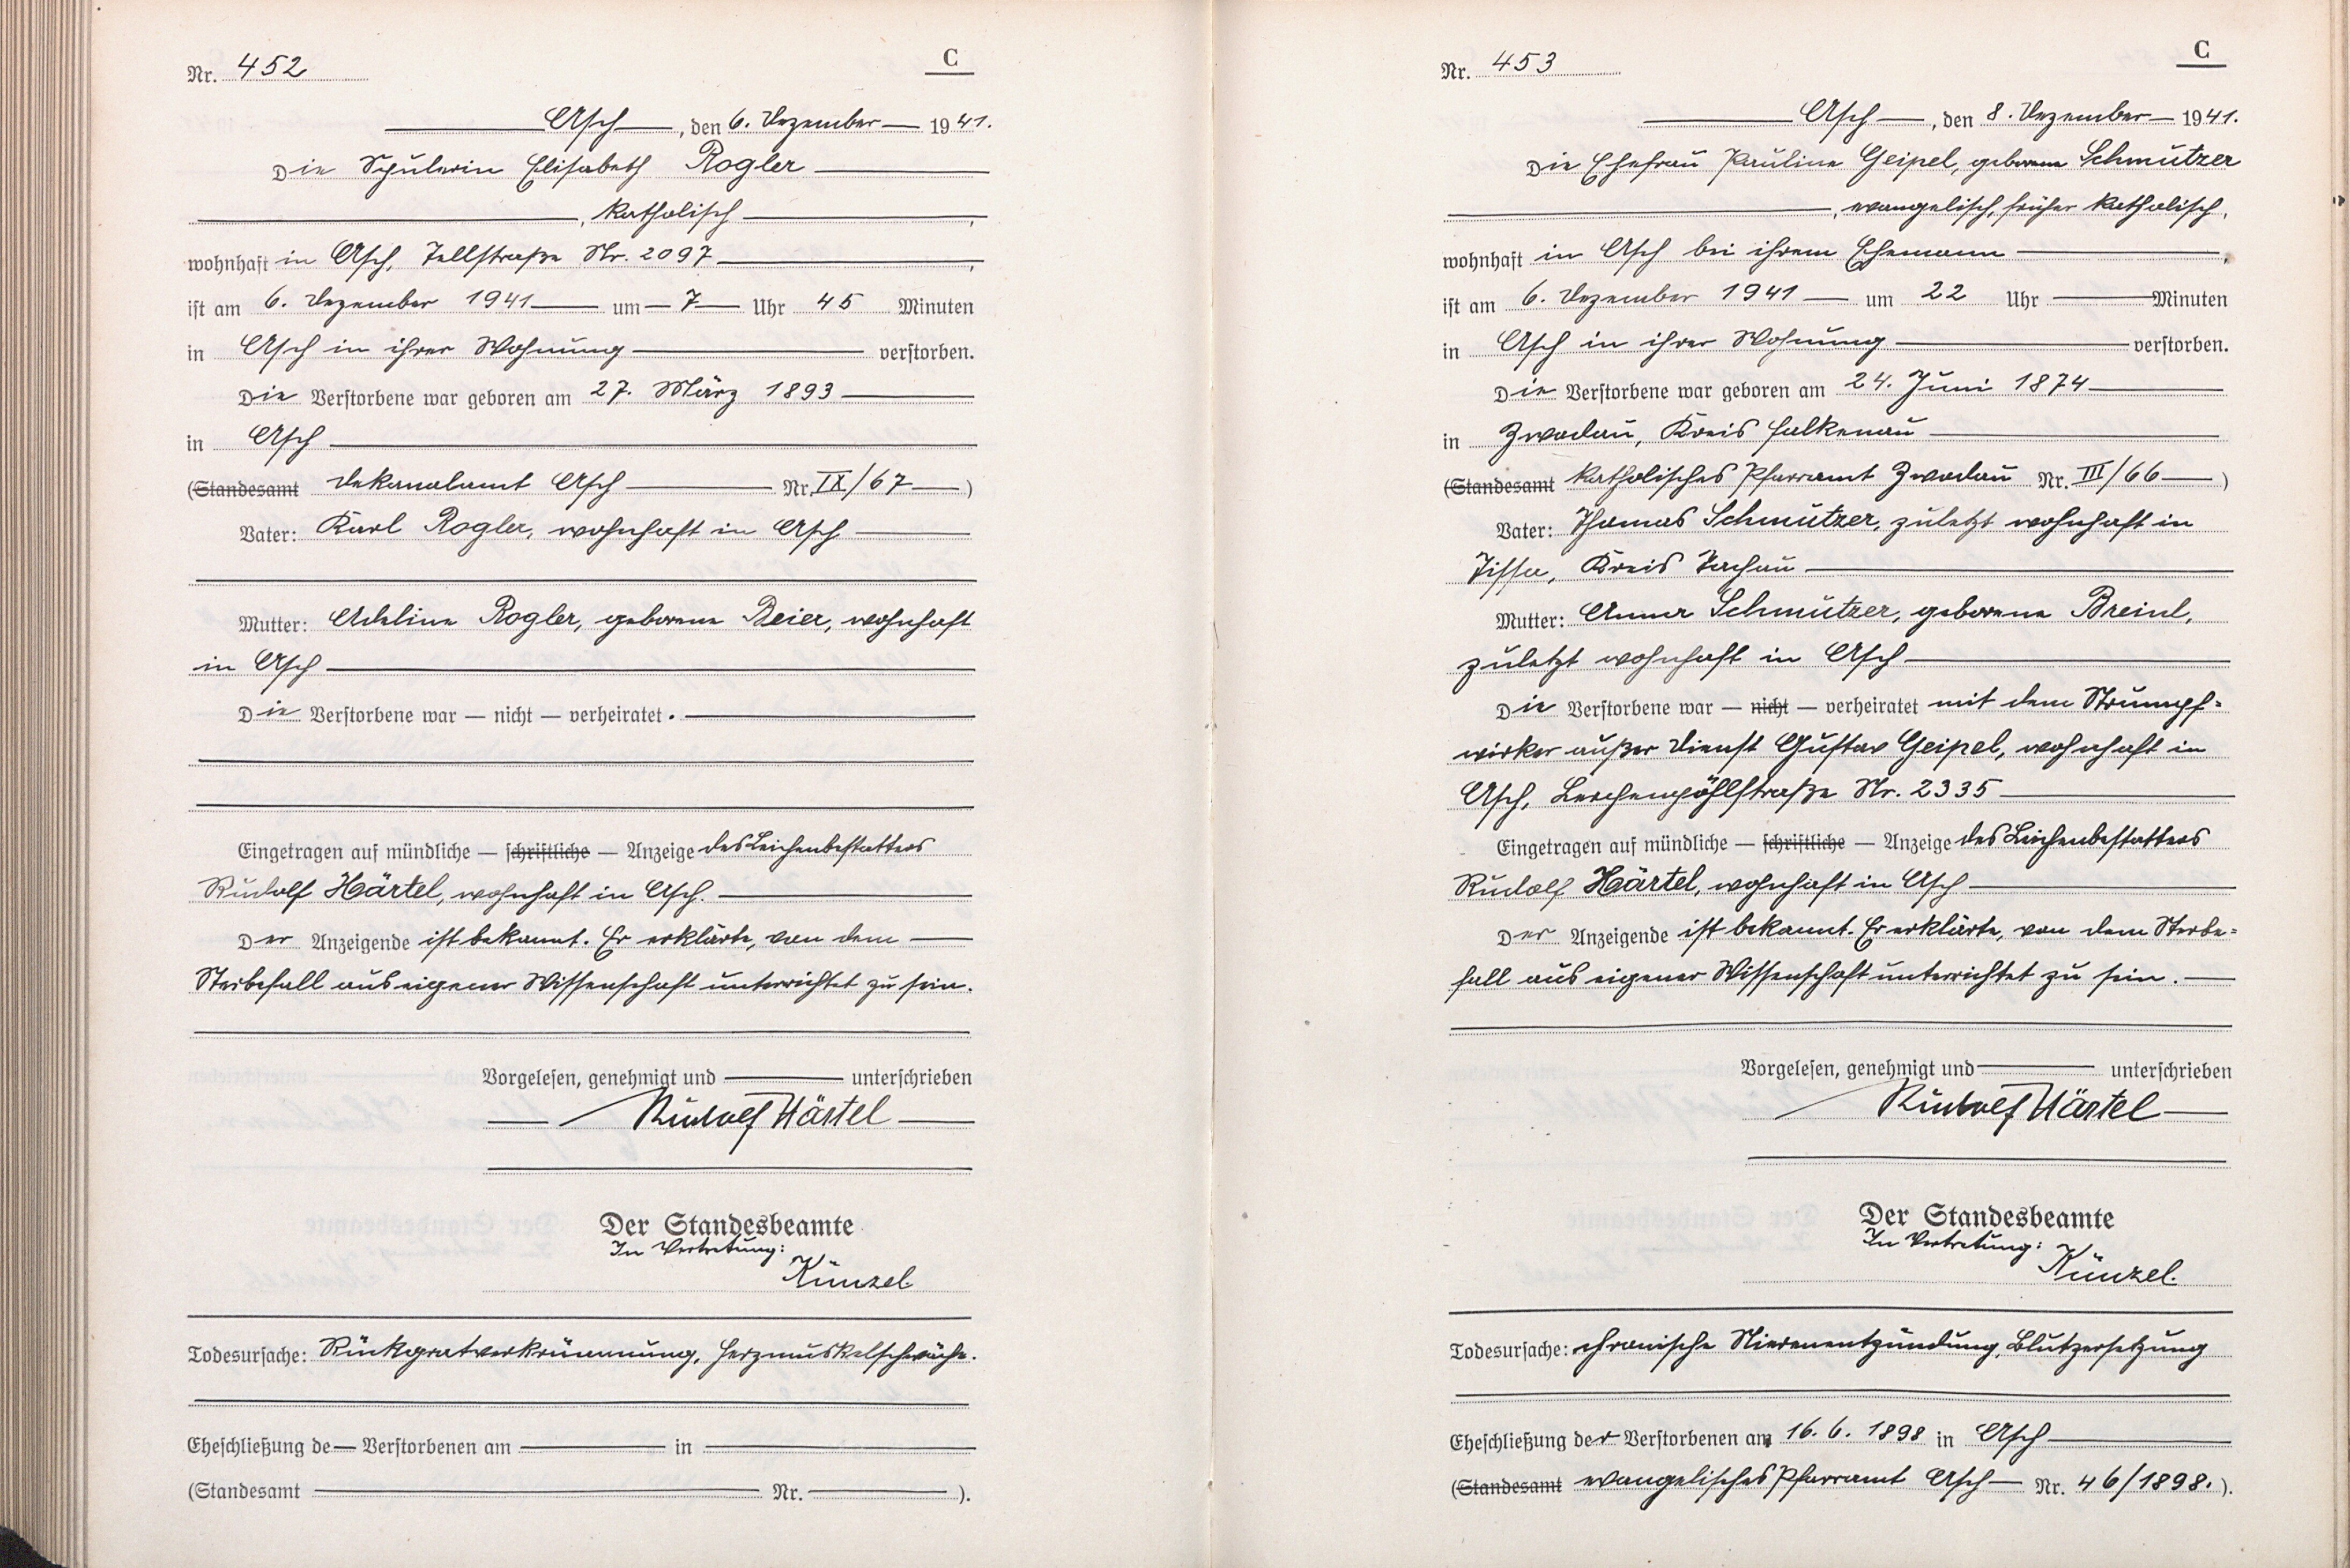 Nr. 452
C
Asch, den 6. Dezember 1941.
Die Spulerin Elisabeth Rogler
, katholisch,
wohnhaft in Asch, Tellstraße Nr. 2097,
ist am 6. Dezember 1941 um 7 Uhr 45 Minuten
in Asch in ihrer Wohnung verstorben.
Die Verstorbene war geboren am 27. März 1893
in Asch
(Standesamt Dekanalamt Asch Nr. IX/67)
Vater: Karl Rogler, wohnhaft in Asch
Mutter: Adeline Rogler, geborene Beier, wohnhaft
in Asch
Die Verstorbene war — nicht — verheiratet.
Eingetragen auf mündliche — schriftliche — Anzeige des Leichenbestatters
Rudolf Härtel, wohnhaft in Asch.
Der Anzeigende ist bekannt. Er erklärte, von dem
Sterbefall aus eigener Wissenschaft unterrichtet zu sein.
Vorgelesen, genehmigt und unterschrieben
Rudolf Härtel
Der Standesbeamte
In Vertretung:
Künzel.
Todesursache: Rückgratverkrümmung, Herzmuskelschwäche.
Eheschließung de Verstorbenen am in
(Standesamt Nr. ).
Nr. 453
C
Asch, den 8. Dezember 1941.
Die Ehefrau Pauline Geipel, geborene Schmutzer
, evangelisch, früher katholisch,
wohnhaft in Asch bei ihrem Ehemann,
ist am 6. Dezember 1941 um 22 Uhr Minuten
in Asch in ihrer Wohnung verstorben.
Die Verstorbene war geboren am 24. Juni 1874
in Zwodau, Kreis Falkenau
(Standesamt katholisches Pfarramt Zwodau Nr. III/66)
Vater: Thomas Schmutzer, zuletzt wohnhaft in
Tissa, Kreis Tachau
Mutter: Anna Schmutzer, geborene Breinl,
zuletzt wohnhaft in Asch
Die Verstorbene war — nicht — verheiratet mit dem Strumpf=
wirker außer Dienst Gustav Geipel, wohnhaft in
Asch, Lerchenpöhlstraße Nr. 2335
Eingetragen auf mündliche — schriftliche — Anzeige des Leichenbestatters
Rudolf Härtel, wohnhaft in Asch
Der Anzeigende ist bekannt. Er erklärte, von dem Sterbe=
fall aus eigener Wissenschaft unterrichtet zu sein.
Vorgelesen, genehmigt und unterschrieben
Rudolf Härtel
Der Standesbeamte
In Vertretung:
Künzel.
Todesursache: chronische Nierenentzündung, Blutzersetzung
Eheschließung der Verstorbenen am 16. 6. 1898 in Asch
(Standesamt evangelisches Pfarramt Asch Nr. 46/1898.).